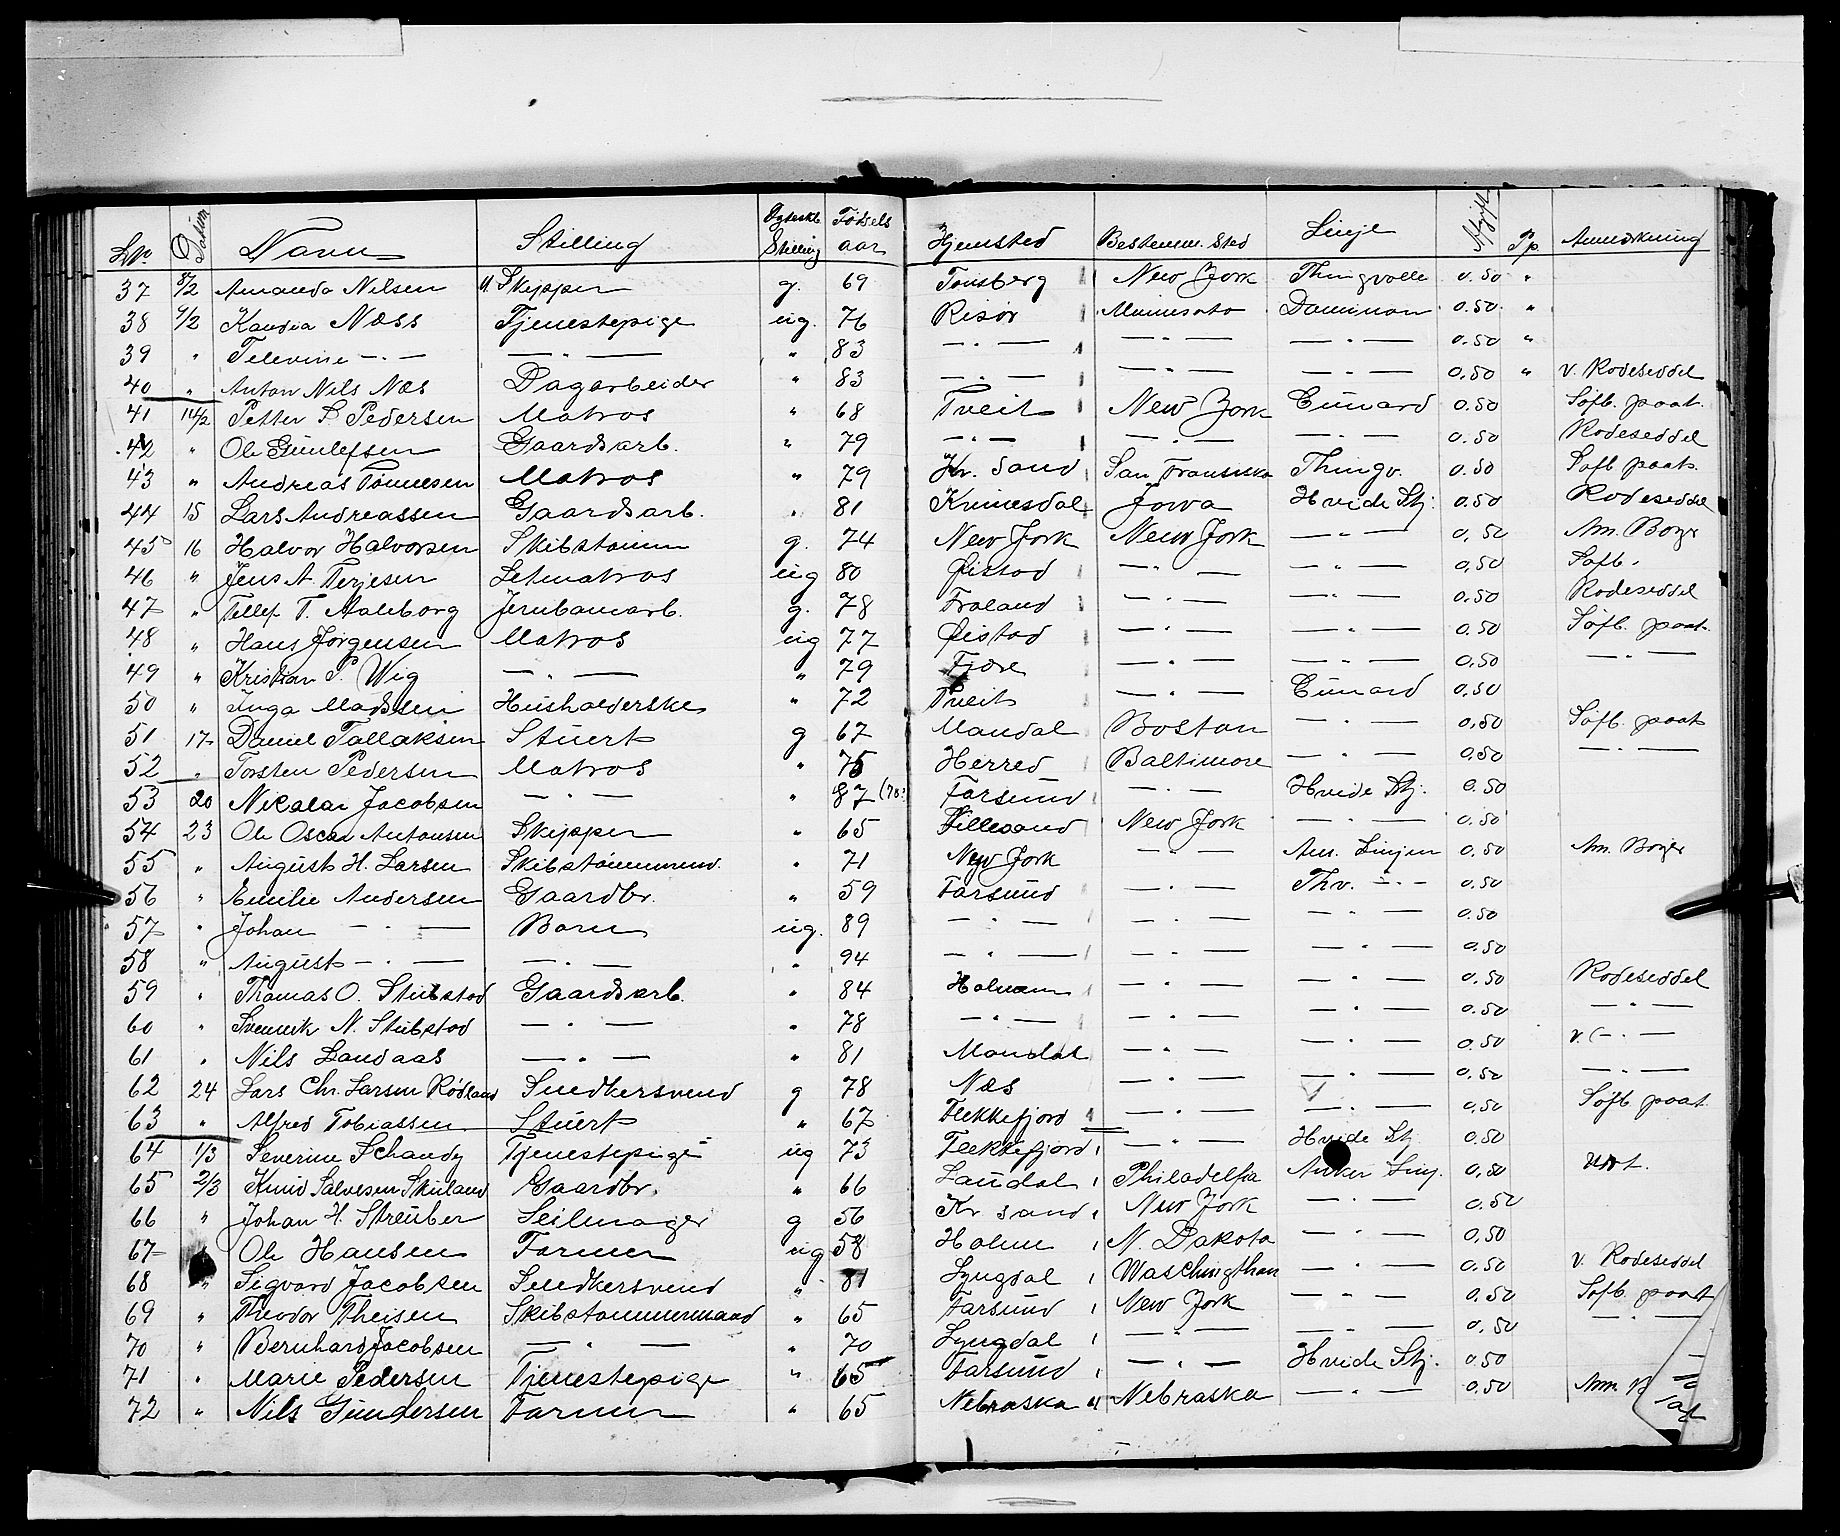 LNo. Datum Navn Stilling Egteskb. Stilling Fødsels aar Hjemsted Bestemm. Sted Linje Afgift Pp Anmærkning
37 8/2 Amanda Nilsen Skipper g. 69 Tønsberg New York Thingvalla 0.50 "
38 9/2 Næss Tjenestepige ug. 76 Risør Minnesota Dominion 0.50 "
39 " Televine — " — — " — " 83 — " — — " — — " — 0.50 "
40 " Anton Nils Næs Dagarbeider " 83 — " — — " — — " — 0.50 " v. Rodeseddel
41 14/2 Petter S. Pedersen Matros " 68 Tveit New York Cunard 0.50 Søfb. paat.
42 " Ole Gunlefsen Gaardsarb. " 79 — " — — " — — " — 0.50 Rodeseddel
43 " Andreas Tønnesen Matros " 79 Kr. Sand San Fransisko Thingv. 0.50 Søfb. paat.
44 15 Lars Andreassen Gaardsarb. " 81 Kvinesdal Jowa Hvide Stj. 0.50 Rodeseddel
45 16 Halvor Halvorsen Skibstømm g. 74 New York New York — " — 0,50 Am. Borger
46 " Jens A. Terjesen Letmatros ug 80 Øistad — " — — " — 0,50 Søfb.
47 " Tellef T. Aaleborg Jernbanearb. g. 78 Froland — " — — " — 0.50 Rodeseddel
48 " Hans Jørgensen Matros ug 77 Øistad — " — — " — 0.50 Søfb. paat.
49 " Kristian P. Wig — " — " 79 Fjære — " — — " — 0.50 — " —
50 " Inga Madssen Husholderske " 72 Tveit — " — Cunard 0.50
51 17 Daniel Tallaksen Stuert g 67 Mandal Boston — " — 0.50 Søfb. paat
52 " Torsten Pedersen Matros " 75 Herred Baltimore — " — 0.50 — " —
53 20 Nicolai Jacobsen — " — " 87 (78? Farsund — " — Hvide Stj. 0.50
54 23 Ole Oscar Antonsen Skipper " 65 Lillesand New York — " — 0.50
55 " August H. Larsen Skibstømmermd. " 71 New York — " — Am. Linjen 0.50 Am. Borger
56 " Emilie Andersen Gaardbr. " 59 Farsund — " — Thv. — " — 0.50
57 " Johan — " — Barn ug. 89 — " — — " — — " — 0.50
58 " August — " — — " — " 94 — " — — " — — " — 0.50
59 " Thomas O. Stubstad Gaardsarb. " 84 Halvaam — " — — " — 0.50 Rodeseddel
60 " N. Stubstad — " — " 78 — " — — " — — " — 0.50 — " —
61 " Nils Landaas — " — " 81 Mandal — " — — " — 0.50 v. — " —
62 24 Lars Chr. Larsen Rødland Snedkersvend g 78 Næs — " — — " — 0.50 — " —
63 " Alfred Tobiassen Stuert " 67 Flekkefjord — " — — " — 0,50 Søfb paat
64 1/3 Severine Schandy Tjenestepige ug 73 Flekkefjord — " — Hvide Stj 0.50
65 2/3 Knud Salvesen Skuland Gaardbr. " 66 Laudal Philadelfia Anker Linj. 0,50
66 " Johan H. Streuber Seilmager g 56 Kr. sand New York — " — 0.50
67 " Ole Hansen Farmer ug 58 Holum N. Dakota — " — 0.50
68 " Sigvard Jacobsen Snedkersvend " 81 Lyngdal Waschingthon — " — 0.50 v. Rodeseddel
69 " Theodor Theisen Skibstømmermand " 65 Farsund New York — " — 0.50 Søfb. paat
70 " Bernhard Jacobsen — " — " 70 Lyngdal — " — — " — 0.50 — " —
71 " Marie Pedersen Tjenestepige " 65 Farsund — " — Hvide Stj. 0.50
72 " Nils Gundersen Farmer " 65 Nebraska Nebraska — " — 0.50 Am. B